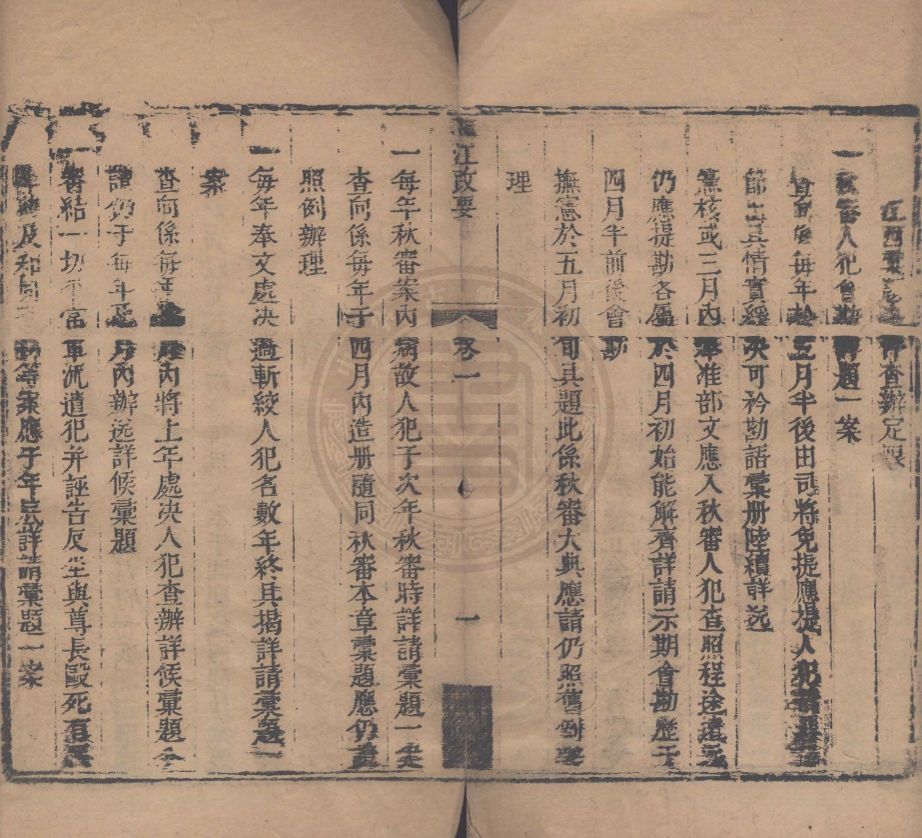 查辦定限
一秋審人犯會勘具題一案
每年於五月半後由司將免提應提人犯
情實緩決可矜勘語彙册陸續詳送
憲核或三月內奉准部文應入秋審人犯查照程途遠近
仍應提勘各屬於四月初始能解齊詳請示期會勘歷于
四月半前後會勘
撫憲於五月初旬具題此係秋審大典應請仍照舊例辦
理
江政要
卷一
一
一每年秋審案內病故人犯于次年秋審時詳請彙題一案
查向係每年于四月內造册隨同秋審本章彙題應仍
照例辦理
一每年奉文處決過斬絞人犯名數年終具揭詳請彙題一
案
查向係每年 月內將上年處決人犯查辦詳候彙題今
請仍于每年 月內辦送詳候彙題
一審結一切 軍流遣犯并誣告反坐與尊長毆死有
及和同 等案應于年底詳請彙題一案